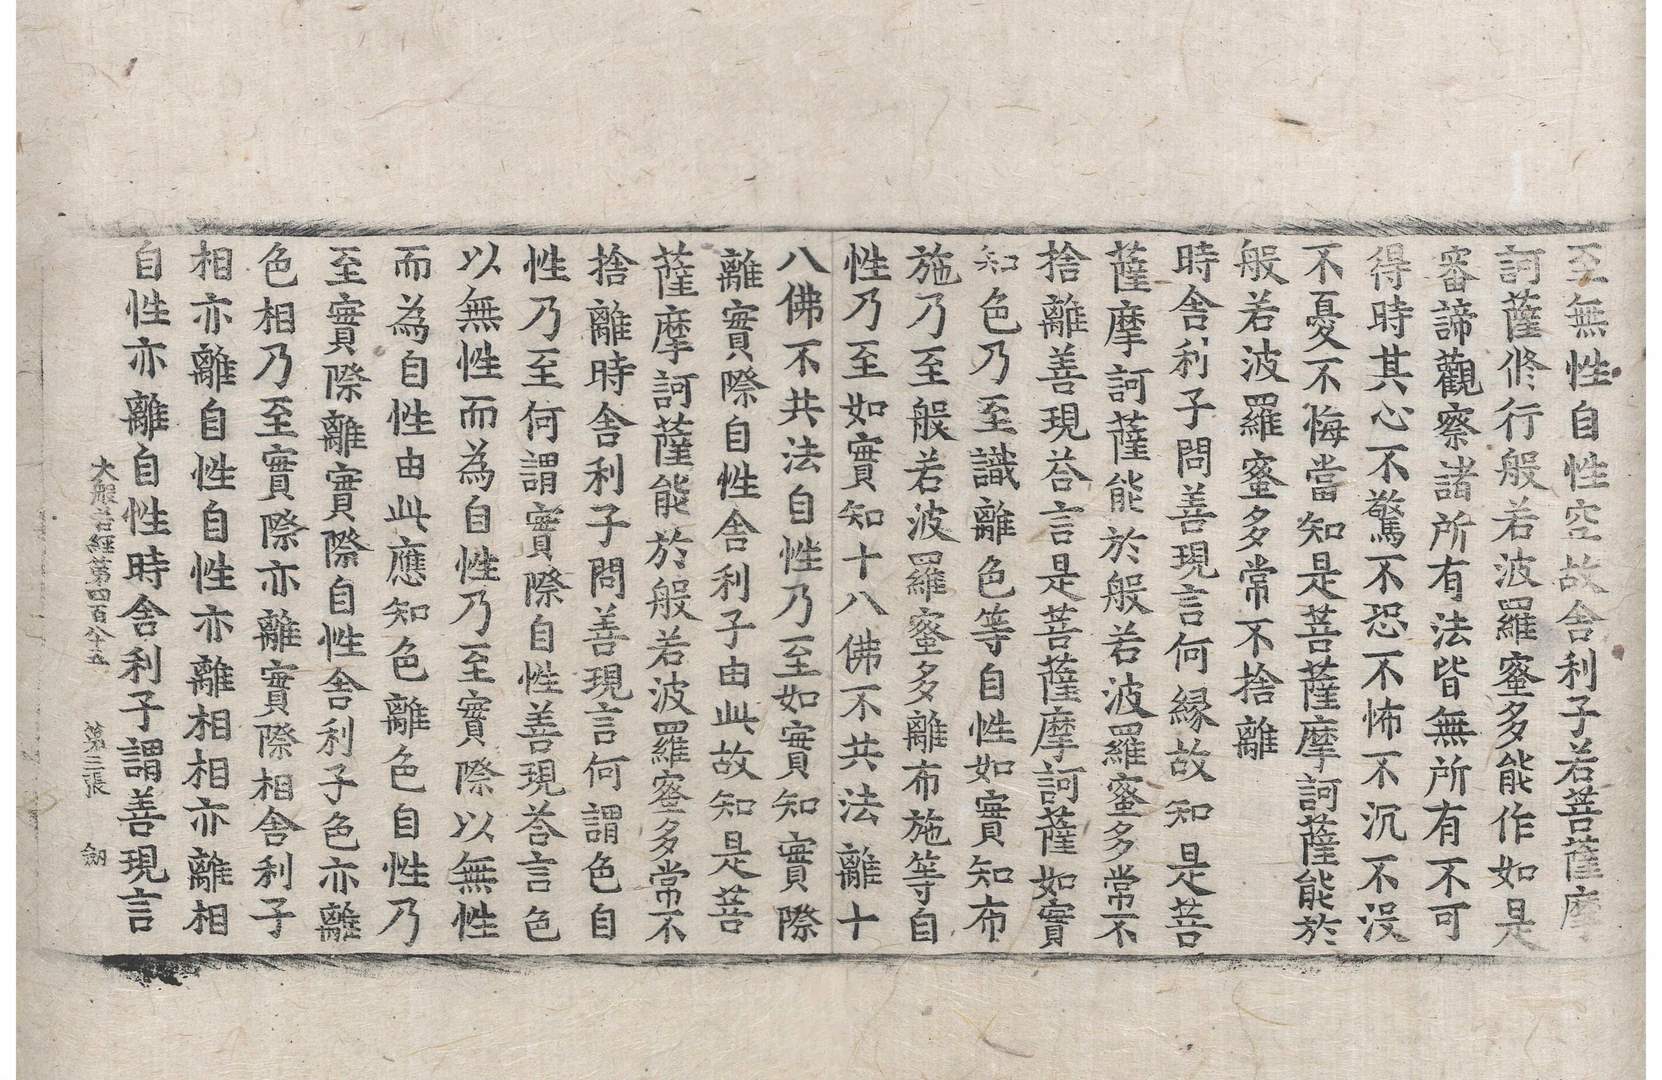 至無性自性空故舍利子若菩薩摩
訶薩修行般若波羅蜜多能作如是
審諦觀察諸所有法皆無所有不可
得時其心不驚不恐不怖不沉不沒
不憂不悔當知是菩薩摩訶薩能於
般若波羅蜜多常不捨離
時舍利子問善現言何緣故知是菩
薩摩訶薩能於般若波羅蜜多常不
捨離善現荅言是菩薩摩訶薩如實
知色乃至識離色等自性如實知布
施乃至般若波羅蜜多離布施等自
性乃至如實知十八佛不共法離十
八佛不共法自性乃至如實知實際
離實際自性舍利子由此故知是菩
薩摩訶薩能於般若波羅蜜多常不
捨離時舍利子問善現言何謂色自
性乃至何謂實際自性善現荅言色
以無性而為自性乃至實際以無性
而為自性由此應知色離色自性乃
至實際離實際自性舍利子色亦離
色相乃至實際亦離實際相舍利子
相亦離自性自性亦離相相亦離相
自性亦離自性時舍利子謂善現言
大般若經第四百八十五 第三張 劒